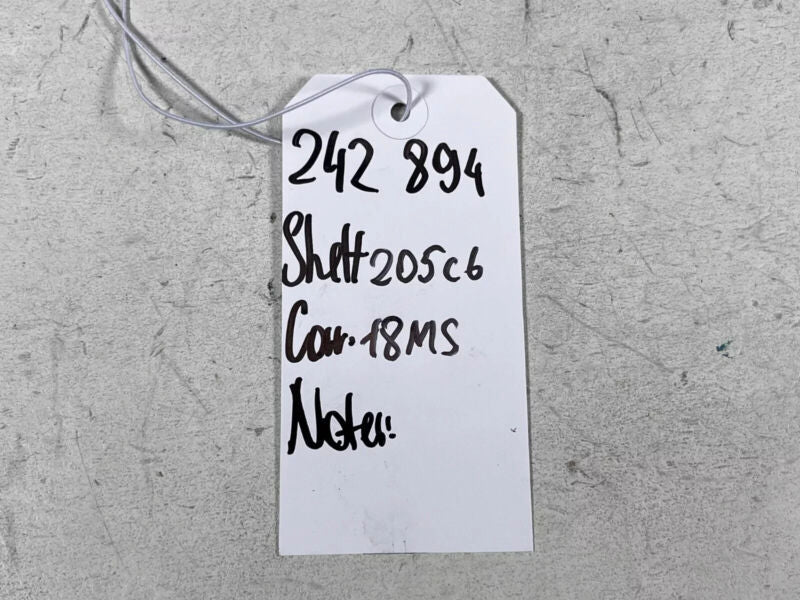 242 894
Shelf 205c6
Corr. 18MS
Notes: